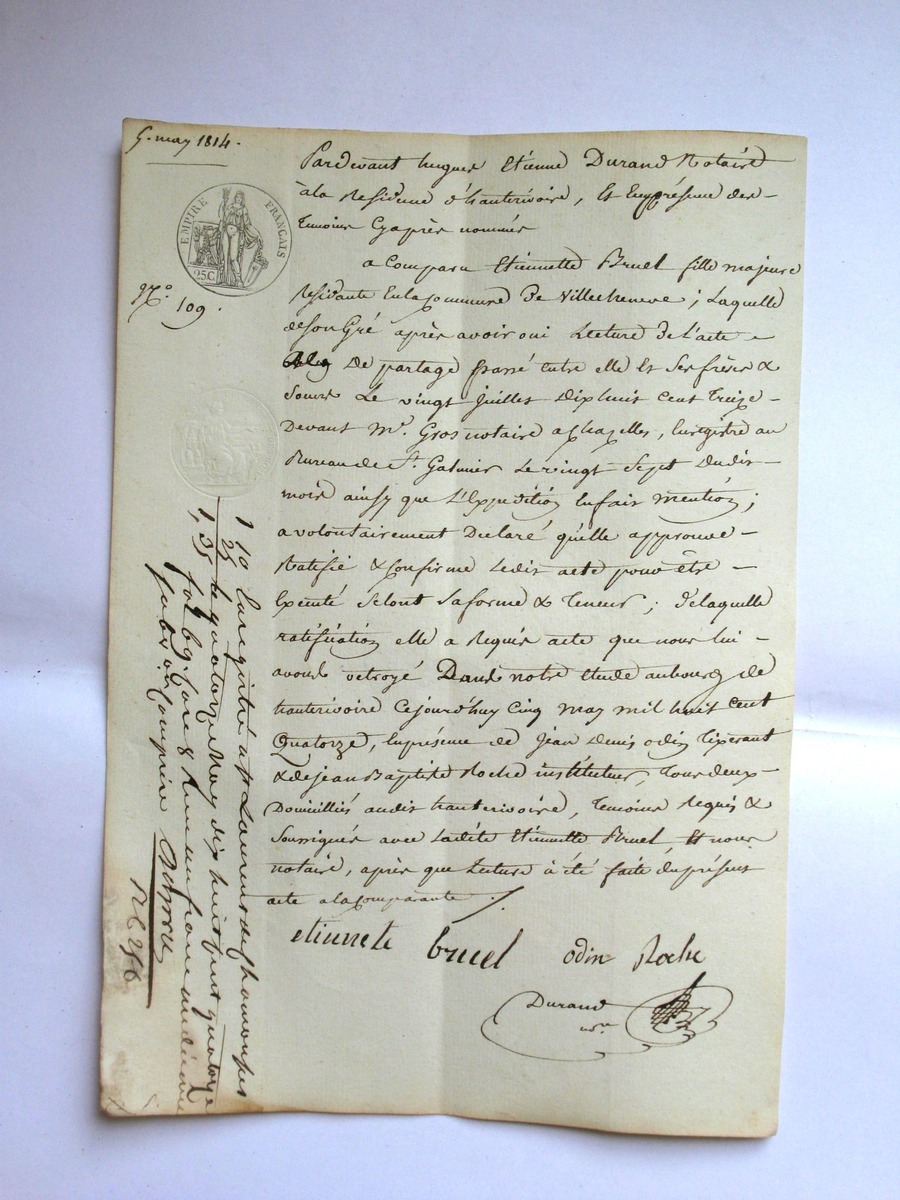 5. may 1814.
EMPIRE FRANÇAIS
25C
N.º 109.
Pardevant hugues Etienne Durand Notaire
à la Residence d'hauterivoire, Et En présence des
Temoins Cy après nommés
a Comparu Etiennette Bruel fille majeure
Residante En la Commune de Villecheneve ; Laquelle
de Son Gré après avoir oui Lecture de l'acte
De partage passé entre elle Et Ses frères &
Soeurs Le vingt juillet Dix huit Cent Treize
Devant Mᵉ. Gros notaire a Chazelles, Enregistré au
Bureau de Sᵗ. Galmier Le vingt Sept Dudit
mois ainsy que L'Expédition En fait mention ;
a volontairement Declaré qu'elle approuve
Ratifie & Confirme Ledit acte pour être
Exécuté Selont Sa forme & Teneur ; de laquelle
ratification elle a Requis acte que nous lui
avons octroyé Dans notre Etude au bourg de
hauterivoire Cejourd'huy Cinq may mil huit Cent
Quatorze, En présence de Jean Denis odin Tixerant
& de jean Baptiste Roche instituteur, Tous deux
Domiciliés audit hauterivoire, Temoins Requis &
Soussignés avec Ladite Etiennette Bruel, Et nous
notaire, après que Lecture à été faite du présent
acte a la Comparante ./.
etiennete bruel odin Roche
Durand
nore
1 10 Enregistré a St Laurent de chamousset
25 le quatorze May dix huit cent quatorze
1,35 fol 69 Case 8 Reçu un franc un décime